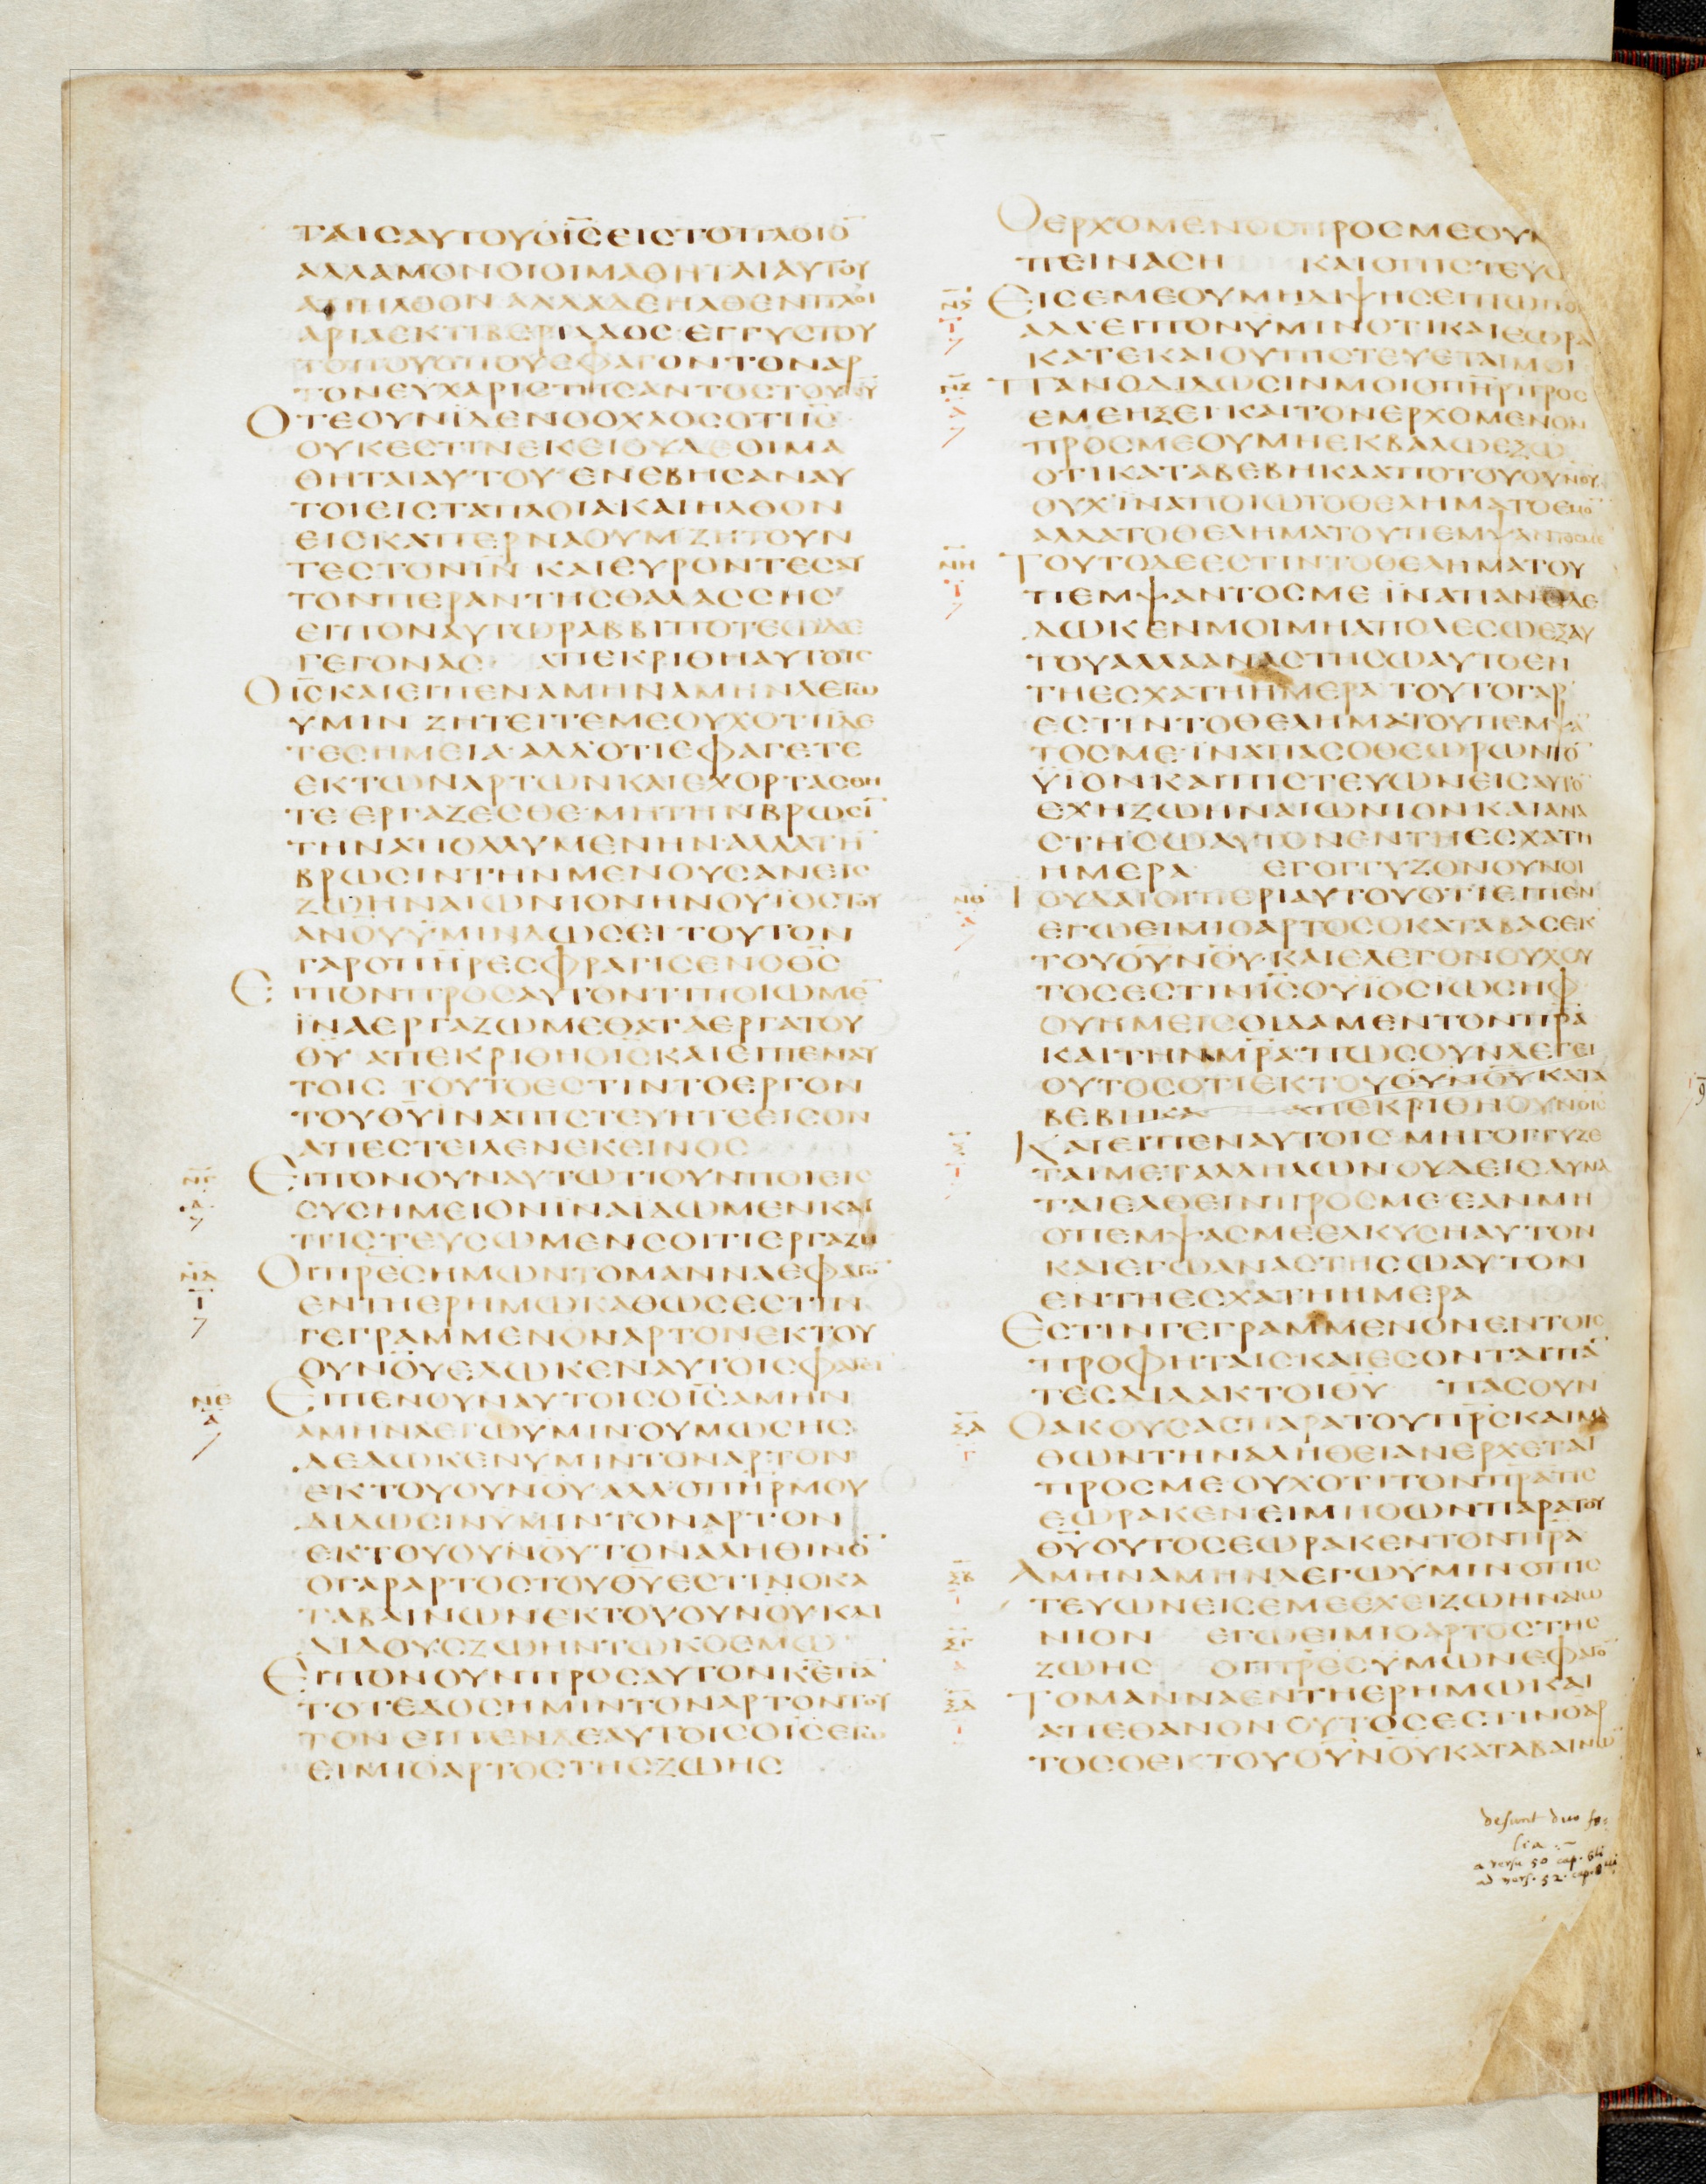 ΤΑΙΣΑΥΤΟΥΟΙ̅Σ̅ΕΙΣΤΟΠΛΟΙΟ̅
ΑΛΛΑΜΟΝΟΙΟΙΜΑΘΗΤΑΙΑΥΤΟΥ
ΑΠΗΛΘΟΝΑΛΛΑΔΕΗΛΘΕΝΠΛΟΙ
ΑΡΙΑΕΚΤΙΒΕΡΙΑΔΟΣ·ΕΓΓΥΣΤΟΥ
ΤΟΠΟΥΟΠΟΥΕΦΑΓΟΝΤΟΝΑΡ
ΤΟΝΕΥΧΑΡΙΣΤΗΣΑΝΤΟΣΤΟΥΚ̅Υ̅
ΟΤΕΟΥΝΙΔΕΝΟΟΧΛΟΣΟΤΙΙ̅Σ̅
ΟΥΚΕΣΤΙΝΕΚΕΙΟΥΔΕΟΙΜΑ
ΘΗΤΑΙΑΥΤΟΥ ΕΝΕΒΗΣΑΝΑΥ
ΤΟΙΕΙΣΤΑΠΛΟΙΑΚΑΙΗΛΘΟΝ
ΕΙΣΚΑΠΕΡΝΑΟΥΜΖΗΤΟΥΝ
ΤΕΣΤΟΝΙ̅Ν̅ ΚΑΙΕΥΡΟΝΤΕΣΑΥ
ΤΟΝΠΕΡΑΝΤΗΣΘΑΛΑΣΣΗΣ
ΕΙΠΟΝΑΥΤΩΡΑΒΒΙΠΟΤΕΩΔΕ
ΓΕΓΟΝΑΣ ΑΠΕΚΡΙΘΗΑΥΤΟΙΣ
ΟΙ̅Σ̅ΚΑΙΕΙΠΕΝΑΜΗΝΑΜΗΝΛΕΓΩ
ΥΜΙΝ ΖΗΤΕΙΤΕΜΕΟΥΧΟΤΙΙΔΕ
ΤΕΣΗΜΕΙΑ·ΑΛΛΟΤΙΕΦΑΓΕΤΕ
ΕΚΤΩΝΑΡΤΩΝΚΑΙΕΧΟΡΤΑΣΘΗ
ΤΕ ΕΡΓΑΖΕΣΘΕ·ΜΗΤΗΝΒΡΩΣΙ̅
ΤΗΝΑΠΟΛΛΥΜΕΝΗΝ·ΑΛΛΑΤΗ̅
ΒΡΩΣΙΝΤΗΝΜΕΝΟΥΣΑΝΕΙΣ
ΖΩΗΝΑΙΩΝΙΟΝΗΝΟΥΙΟΣΤΟΥ
ΑΝ̅Ο̅Υ̅ΥΜΙΝΔΩΣΕΙΤΟΥΤΟΝ
ΓΑΡΟΠ̅Η̅Ρ̅ΕΣΦΡΑΓΙΣΕΝΟΘ̅Σ̅
ΕΙΠΟΝΠΡΟΣΑΥΤΟΝΤΙΠΟΙΩΜΕ̅
ΙΝΑΕΡΓΑΖΩΜΕΘΑΤΑΕΡΓΑΤΟΥ
Θ̅Υ̅ ΑΠΕΚΡΙΘΗΟΙ̅Σ̅ΚΑΙΕΙΠΕΝΑΥ
ΤΟΙΣ ΤΟΥΤΟΕΣΤΙΝΤΟΕΡΓΟΝ
ΤΟΥΘ̅Υ̅ΙΝΑΠΙΣΤΕΥΗΤΕΕΙΣΟΝ
ΑΠΕΣΤΕΙΛΕΝΕΚΕΙΝΟΣ
ΕΙΠΟΝΟΥΝΑΥΤΩΤΙΟΥΝΠΟΙΕΙΣ
ΣΥΣΗΜΕΙΟΝΙΝΑΙΔΩΜΕΝΚΑΙ
ΠΙΣΤΕΥΣΩΜΕΝΣΟΙΤΙΕΡΓΑΖΗ
ΝΔ̅ ΟΙΠ̅Ρ̅Ε̅Σ̅ΗΜΩΝΤΟΜΑΝΝΑΕΦΑΓΟ̅
ΕΝΤΗΕΡΗΜΩΚΑΘΩΣΕΣΤΙΝ
ΓΕΓΡΑΜΜΕΝΟΝΑΡΤΟΝΕΚΤΟΥ
Ο̅Υ̅Ν̅Ο̅Υ̅ΕΔΩΚΕΝΑΥΤΟΙΣΦΑΓΕΙ
ΝΕ̅ ΕΙΠΕΝΟΥΝΑΥΤΟΙΣΟΙ̅Σ̅ΑΜΗΝ
ΑΜΗΝΛΕΓΩΥΜΙΝΟΥΜΩΣΗΣ
ΔΕΔΩΚΕΝΥΜΙΝΤΟΝΑΡΤΟΝ
ΕΚΤΟΥΟΥΝΟΥΑΛΛΟΠ̅Η̅Ρ̅ΜΟΥ
ΔΙΔΩΣΙΝΥΜΙΝΤΟΝΑΡΤΟΝ
ΕΚΤΟΥΟΥΝΟΥΤΟΝΑΛΗΘΙΝΟ̅
ΟΓΑΡΑΡΤΟΣΤΟΥΘ̅Υ̅ΕΣΤΙΝΟΚΑ
ΤΑΒΑΙΝΩΝΕΚΤΟΥΟΥΝΟΥΚΑΙ
ΔΙΔΟΥΣΖΩΗΝΤΩΚΟΣΜΩ
ΕΙΠΟΝΟΥΝΠΡΟΣΑΥΤΟΝΚ̅Ε̅ΠΑ̅
ΤΟΤΕΔΟΣΗΜΙΝΤΟΝΑΡΤΟΝΤΟΥ
ΤΟΝ ΕΙΠΕΝΔΕΑΥΤΟΙΣΟΙ̅Σ̅ΕΓΩ
ΕΙΜΙΟΑΡΤΟΣΤΗΣΖΩΗΣ
ΟΕΡΧΟΜΕΝΟΣΠΡΟΣΜΕΟΥΜ
ΠΕΙΝΑΣΗ ΚΑΙΟΠΙΣΤΕΥΩ
ΝϚ̅ ΕΙΣΕΜΕΟΥΜΗΔΙΨΗΣΕΙΠΩΠΟ
ΑΛΛΕΙΠΟΝΥΜΙΝΟΤΙΚΑΙΕΩΡΑ
ΚΑΤΕΚΑΙΟΥΠΙΣΤΕΥΕΤΑΙΜΟΙ
ΝΖ̅ ΠΑΝΟΔΙΔΩΣΙΝΜΟΙΟΠ̅Η̅Ρ̅ΠΡΟΣ
ΕΜΕΗΞΕΙΚΑΙΤΟΝΕΡΧΟΜΕΝΟΝ
ΠΡΟΣΜΕΟΥΜΗΕΚΒΑΛΩΕΞΩ
ΟΤΙΚΑΤΑΒΕΒΗΚΑΑΠΟΤΟΥΟΥΝΟΥ
ΟΥΧΙΝΑΠΟΙΩΤΟΘΕΛΗΜΑΤΟΕΜΟ̅
ΑΛΛΑΤΟΘΕΛΗΜΑΤΟΥΠΕΜΨΑΝΤΟΣΜΕ
ΝΗ̅ ΤΟΥΤΟΔΕΕΣΤΙΝΤΟΘΕΛΗΜΑΤΟΥ
ΠΕΜΨΑΝΤΟΣΜΕ ΙΝΑΠΑΝΟΔΕ
ΔΩΚΕΝΜΟΙΜΗΑΠΟΛΕΣΩΕΞΑΥ
ΤΟΥΑΛΛΑΑΝΑΣΤΗΣΩΑΥΤΟΕΝ
ΤΗΕΣΧΑΤΗΗΜΕΡΑ ΤΟΥΤΟΓΑΡ
ΕΣΤΙΝΤΟΘΕΛΗΜΑΤΟΥΠΕΜΨΑ̅
ΤΟΣΜΕ·ΙΝΑΠΑΣΟΘΕΩΡΩΝΤΟ̅
ΥΙΟΝΚΑΙΠΙΣΤΕΥΩΝΕΙΣΑΥΤΟ̅
ΕΧΗΖΩΗΝΑΙΩΝΙΟΝΚΑΙΑΝΑ
ΣΤΗΣΩΑΥΤΟΝΕΝΤΗΕΣΧΑΤΗ
ΗΜΕΡΑ ΕΓΟΓΓΥΖΟΝΟΥΝΟΙ
ΝΘ̅ ΙΟΥΔΑΙΟΙΠΕΡΙΑΥΤΟΥΟΤΙΕΙΠΕΝ
ΕΓΩΕΙΜΙΟΑΡΤΟΣΟΚΑΤΑΒΑΣΕΚ
ΤΟΥΟ̅Υ̅Ν̅Ο̅Υ̅·ΚΑΙΕΛΕΓΟΝΟΥΧΟΥ
ΤΟΣΕΣΤΙΝΙ̅Σ̅ΟΥΙΟΣΙΩΣΗΦ
ΟΥΗΜΕΙΣΟΙΔΑΜΕΝΤΟΝΠ̅Ρ̅Α̅
ΚΑΙΤΗΝΜ̅Ρ̅Α̅ΠΩΣΟΥΝΛΕΓΕΙ
ΟΥΤΟΣΟΤΙΕΚΤΟΥΟ̅Υ̅Ν̅Ο̅Υ̅ΚΑΤΑ
ΒΕΒΗΚΑ ΑΠΕΚΡΙΘΗΟΥΝΟΙ̅Σ̅
Ξ̅ ΚΑΙΕΙΠΕΝΑΥΤΟΙΣ·ΜΗΓΟΓΓΥΖΕ
ΤΑΙΜΕΤΑΛΛΗΛΩΝΟΥΔΕΙΣΔΥΝΑ
ΤΑΙΕΛΘΕΙΝΠΡΟΣΜΕ·ΕΑΝΜΗ
ΟΠΕΜΨΑΣΜΕΕΛΚΥΣΗΑΥΤΟΝ
ΚΑΙΕΓΩΑΝΑΣΤΗΣΩΑΥΤΟΝ
ΕΝΤΗΕΣΧΑΤΗΗΜΕΡΑ
ΕΣΤΙΝΓΕΓΡΑΜΜΕΝΟΝΕΝΤΟΙΣ
ΠΡΟΦΗΤΑΙΣΚΑΙΕΣΟΝΤΑΙΠΑ̅
ΤΕΣΔΙΔΑΚΤΟΙΘ̅Υ̅ ΠΑΣΟΥΝ
ΞΑ̅ ΟΑΚΟΥΣΑΣΠΑΡΑΤΟΥΠ̅Ρ̅Σ̅ΚΑΙΜΑ
ΘΩΝΤΗΝΑΛΗΘΕΙΑΝΕΡΧΕΤΑΙ
ΠΡΟΣΜΕ ΟΥΧΟΤΙΤΟΝΠ̅Ρ̅Α̅ΤΙΣ
ΕΩΡΑΚΕΝΕΙΜΗΟΩΝΠΑΡΑΤΟΥ
Θ̅Υ̅ΟΥΤΟΣΕΩΡΑΚΕΝΤΟΝΠ̅Ρ̅Α̅
ΞΒ̅ ΑΜΗΝΑΜΗΝΛΕΓΩΥΜΙΝΟΠΙΣ
ΤΕΥΩΝΕΙΣΕΜΕΕΧΕΙΖΩΗΝΑΙΩ
ΞΓ̅ ΝΙΟΝ ΕΓΩΕΙΜΙΟΑΡΤΟΣΤΗΣ
ΖΩΗΣ ΟΙΠ̅Ρ̅Ε̅Σ̅ΥΜΩΝΕΦΑΓΟ̅
ΞΔ̅ ΤΟΜΑΝΝΑΕΝΤΗΕΡΗΜΩΚΑΙ
ΑΠΕΘΑΝΟΝΟΥΤΟΣΕΣΤΙΝΟΑΡ
ΤΟΣΟΕΚΤΟΥΟ̅Υ̅Ν̅Ο̅Υ̅ΚΑΤΑΒΑΙΝΩ̅
desunt duo fo-
lia :–
a versu 50 cap. 6ti
ad vers. 52. cap. 8ui